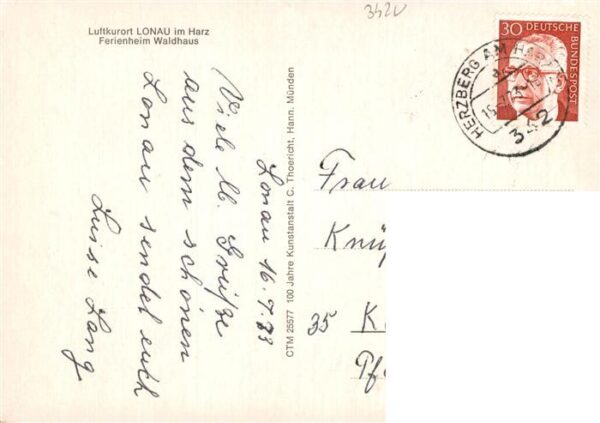 342V
Luftkurort LONAU im Harz
Ferienheim Waldhaus
30 DEUTSCHE BUNDESPOST
HERZBERG AM HARZ
342
Lonau 16.7.73
Viele lb. Grüße
aus dem schönen
Lonau sendet euch
Luise Lang
CTM 25577 100 Jahre Kunstanstalt C. Thoericht, Hann. Münden
Frau
Knüp
35 K
Pf